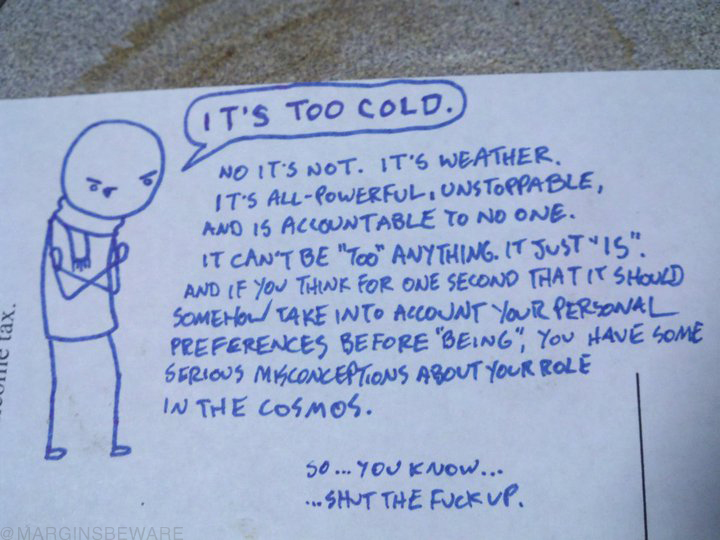 IT'S TOO COLD.
NO IT'S NOT. IT'S WEATHER.
IT'S ALL-POWERFUL, UNSTOPPABLE,
AND IS ACCOUNTABLE TO NO ONE.
IT CAN'T BE "TOO" ANYTHING. IT JUST "IS".
AND IF YOU THINK FOR ONE SECOND THAT IT SHOULD
SOMEHOW TAKE INTO ACCOUNT YOUR PERSONAL
PREFERENCES BEFORE "BEING", YOU HAVE SOME
SERIOUS MISCONCEPTIONS ABOUT YOUR ROLE
IN THE COSMOS.
SO... YOU KNOW...
...SHUT THE FUCK UP.
tax.
@MARGINSBEWARE